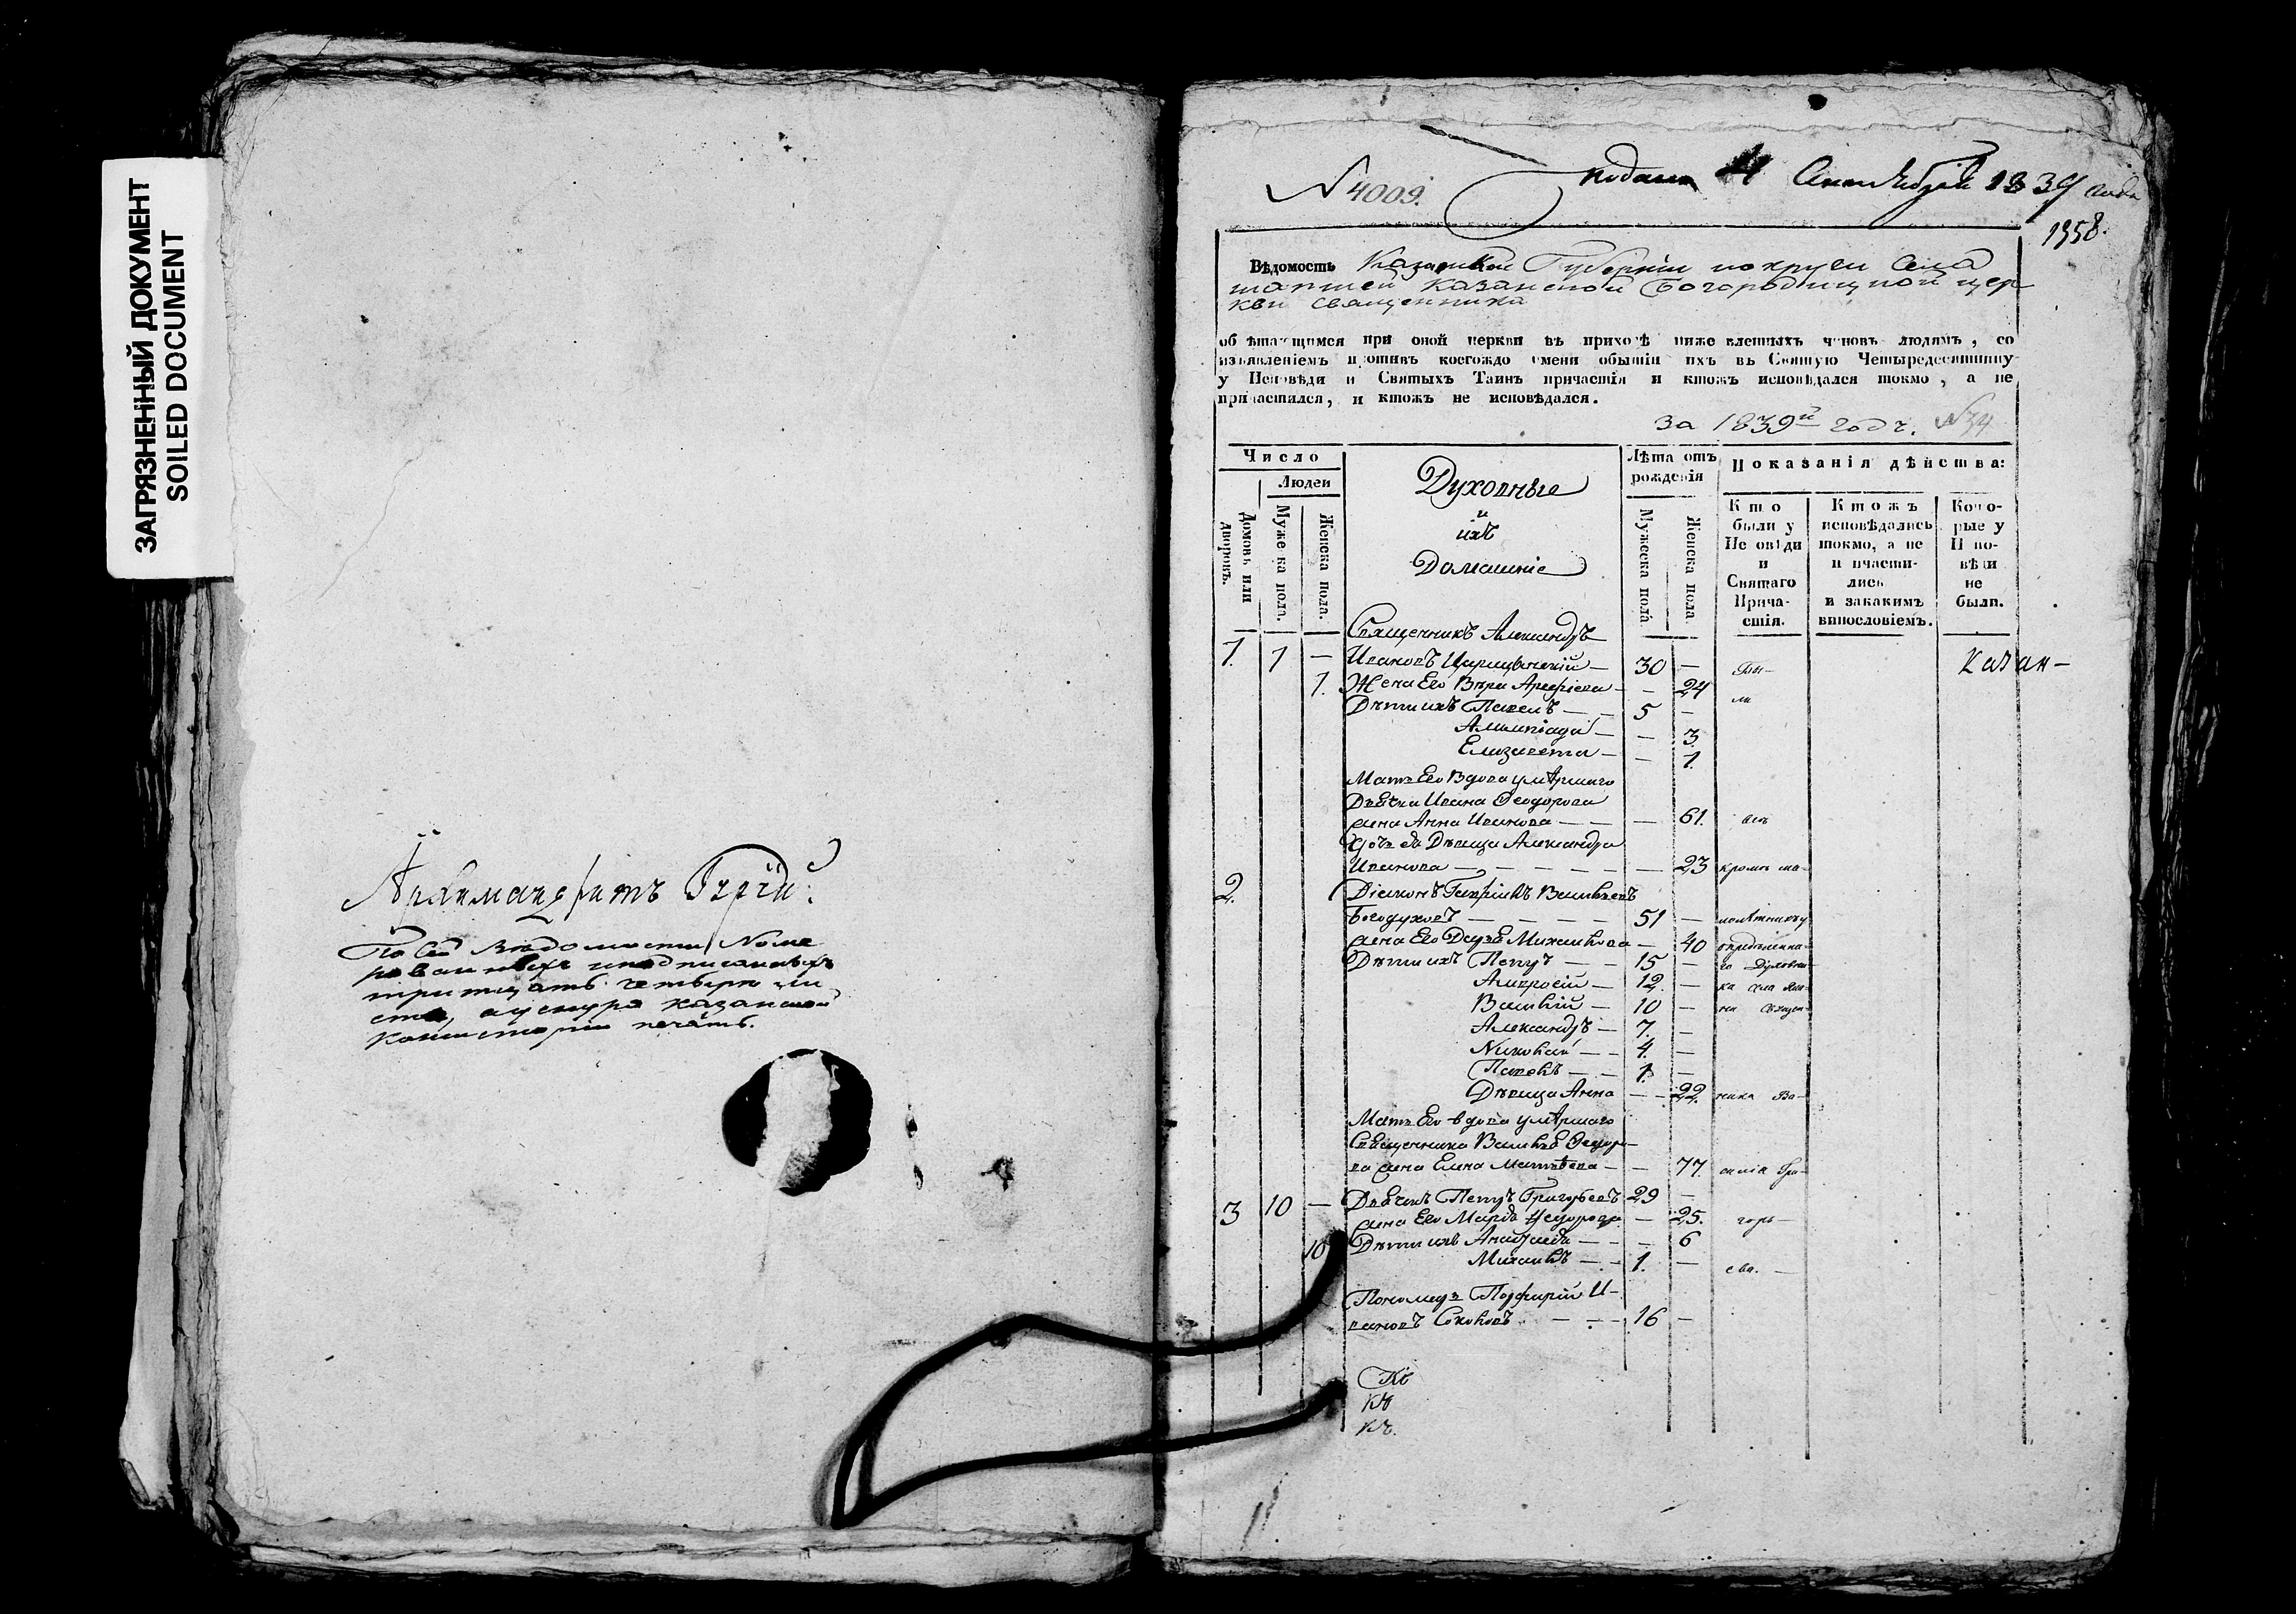 ЗАГРЯЗНЕННЫЙ ДОКУМЕНТ
SOILED DOCUMENT
Архимандритъ Гурій
По сей Ведомости Номе
рованныхъ
тритцать четыре ли
ста, аунихъ Казанской
Консисторіи печать.
N 4009.
подана Сентября 1839 года
1358.
Вѣдомость Казанской Губерніи и округи Села
Шапшей Казанской Богородицкой цер
кви священника
обрѣтающимся при оной церкви въ приходѣ нижеявленныхъ чиновъ людямъ, со
изъявленіемъ противъ коегождо имени о бытіи ихъ въ Святую Четыредесятницу
у Исповѣди и Святыхъ Таинъ причастія и ктожъ исповѣдался токмо, а не
причастился, и ктожъ не исповѣдался.
за 1839й годъ. N 34
Число
Людей
Домовъ или дворовъ.
Мужеска пола.
Женска пола.
Духовные
и
ихъ
Домашніе
Лѣта отъ рожденія
Мужеска пола
Женска пола
Показанія дѣйства:
Кто были у Исповѣди и Святаго Причастія.
Ктожъ исповѣдались токмо, а не причастились и за какимъ винословіемъ.
Которые у Исповѣди не были.
Священникъ Александръ
1. 1 — Ивановъ Царицынскій — 30 — Бы- Казан-
1. Жена Его Вѣра Арефіева — — 24 ли
Дѣти ихъ Павелъ — — 5 —
Алимпіада — — 3.
Елизавета — — 1.
Мать Его Вдова умершаго
Дьячка Ивана Феодорова
жена Анна Иванова — — — 61. всѣ
Дочь ея Дѣвица Александра
Иванова — — — — — 23 кромѣ ма-
2. Діаконъ Гавріилъ Васильевъ
Богодуховъ — — — — 51 — лолѣтнихъ у
жена Его Дарья Михайлова — 40 опредѣленна-
Дѣти ихъ Петръ — — 15 — го Духовни-
Амвросій — 12. — ка села
Василій — 10 — Священ-
Александръ — 7. —
Николай — — 4. —
Павелъ — — 1. —
Дѣвица Анна — — 22. ника Ва-
Мать Его вдова умершаго
Священника Василья Федоро-
ва жена Елена Матвѣева — — 77. силія Гри-
3 10 — Дьячекъ Петръ Григорьевъ 29 —
жена Его Марья Федорова — 25. горь-
10 Дѣти ихъ — — — 6
Михаилъ — — 1. — ева. —
Пономарь Порфирій И-
вановъ Соколовъ — — — 16 —